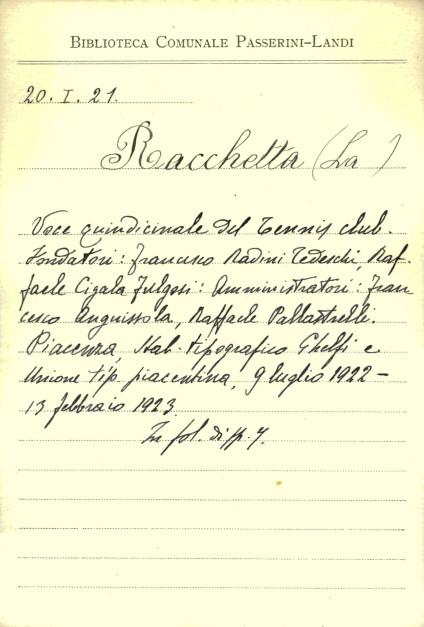 BIBLIOTECA COMUNALE PASSERINI-LANDI
20. I. 21.
Racchetta (La)
Voce quindicinale del Tennis club.
Fondatori: Francesco Radini Tedeschi, Raf-
faele Cigala Fulgosi: Amministratori: Fran
cesco Anguissola, Raffaele Pallastrelli.
Piacenza, Stab. tipografico Ghelfi e
Unione tip. piacentina, 9 luglio 1922 –
13 febbraio 1923
In fol. di pp. 4.